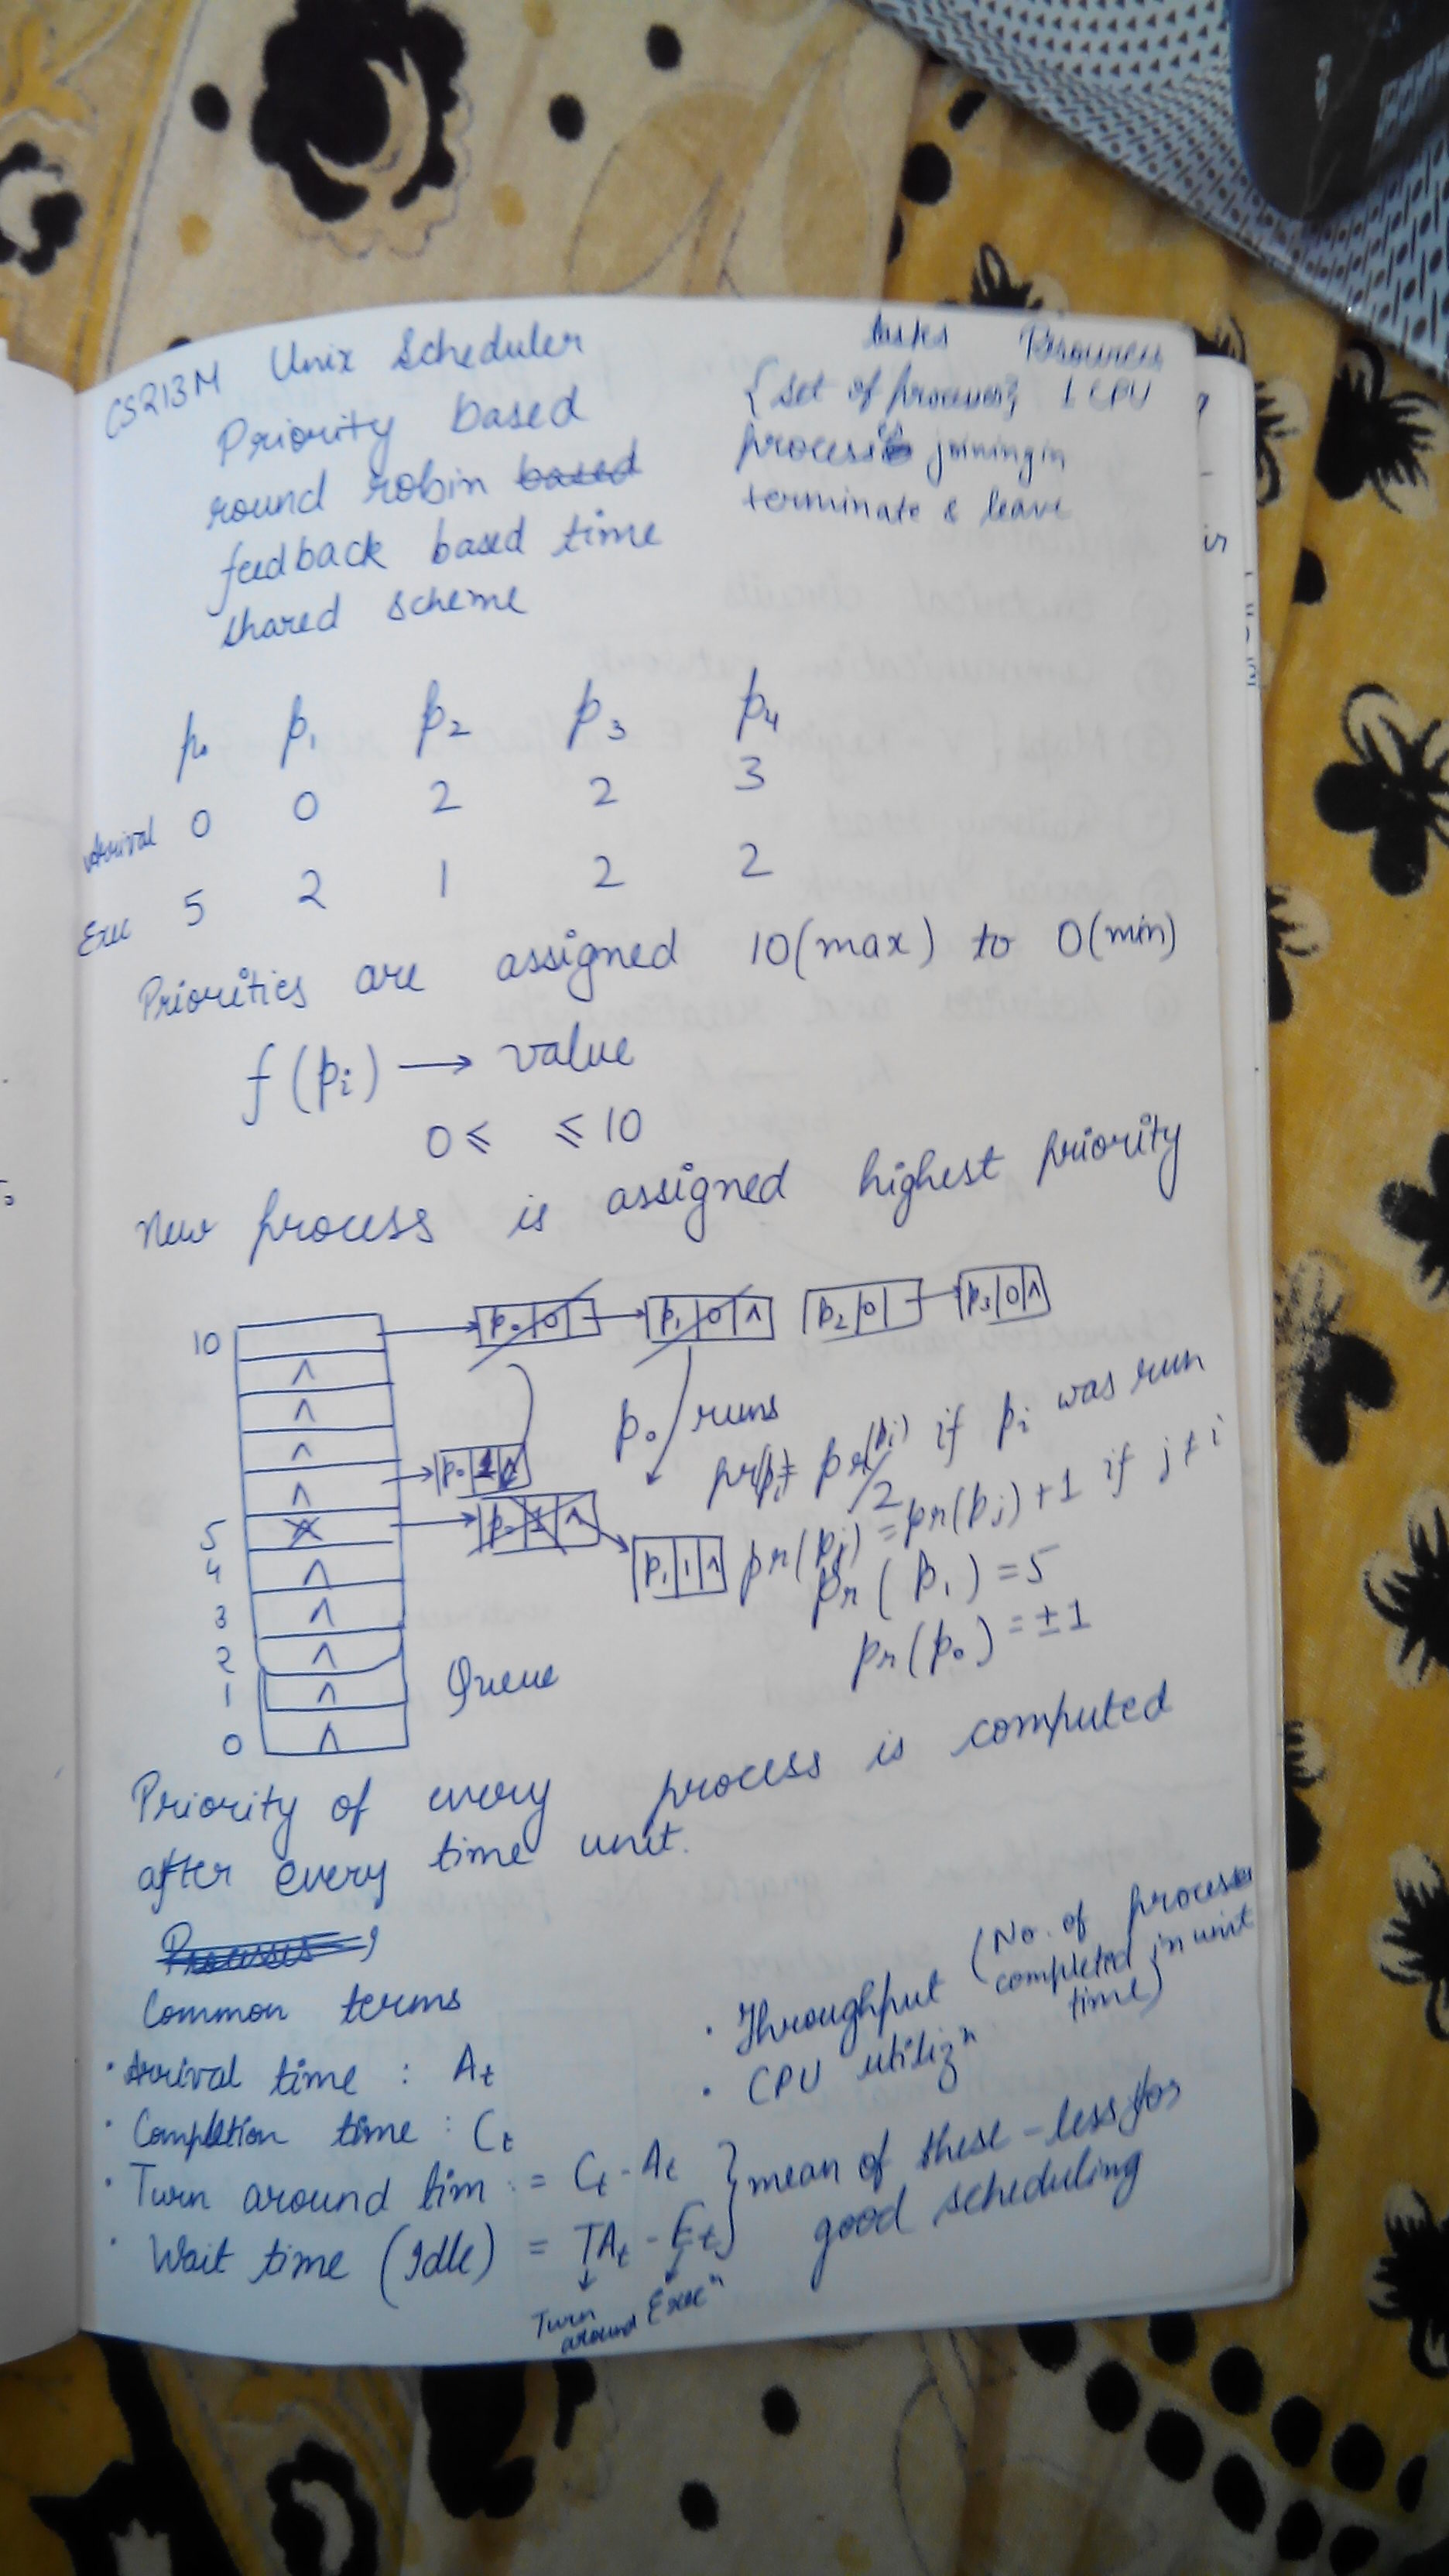 CS213M Unix Scheduler
Priority based
round robin based
feedback based time
shared scheme
tasks Resources
{set of processes} 1 CPU
processes joining in
terminate & leave
p₀ p₁ p₂ p₃ p₄
Arrival 0 0 2 2 3
Exec 5 2 1 2 2
Priorities are assigned 10(max) to 0(min)
f(pᵢ) → value
0 ≤ ≤ 10
New process is assigned highest priority
10 p₀ 0 p₁ 0 ∧ p₂ 0 p₃ 0 ∧
∧
∧
∧
∧ p₀ ∧
5 ∧ p₀ 1 ∧ p₁ 1 ∧
4 ∧
3 ∧
2 ∧
1 ∧
0 ∧
Queue
p₀ runs
pr(pᵢ) = pr(pᵢ)/2 if pᵢ was run
pr(pⱼ) = pr(pⱼ) + 1 if j ≠ i
pr(p₁) = 5
pr(p₀) = ±1
Priority of every process is computed
after every time unit.
Processes
Common terms
· Arrival time : Aₜ
· Completion time : Cₜ
· Turn around tim = Cₜ - Aₜ
· Wait time (Idle) = TAₜ - Eₜ
Turn around Execⁿ
} mean of these - less for
good scheduling
· Throughput (No. of process
completed in unit
time)
· CPU utilizⁿ